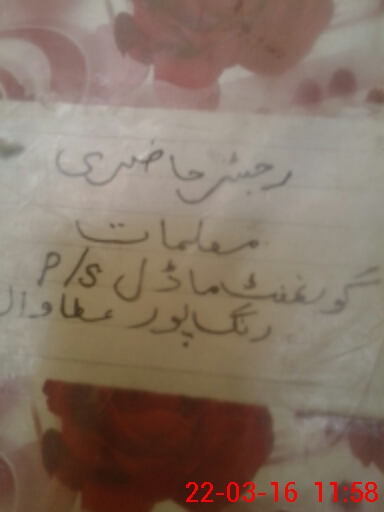 رجسٹر حاضری
معلمات
گورنمنٹ ماڈل P/S
رنگپور عطا وال
22-03-16 11:58